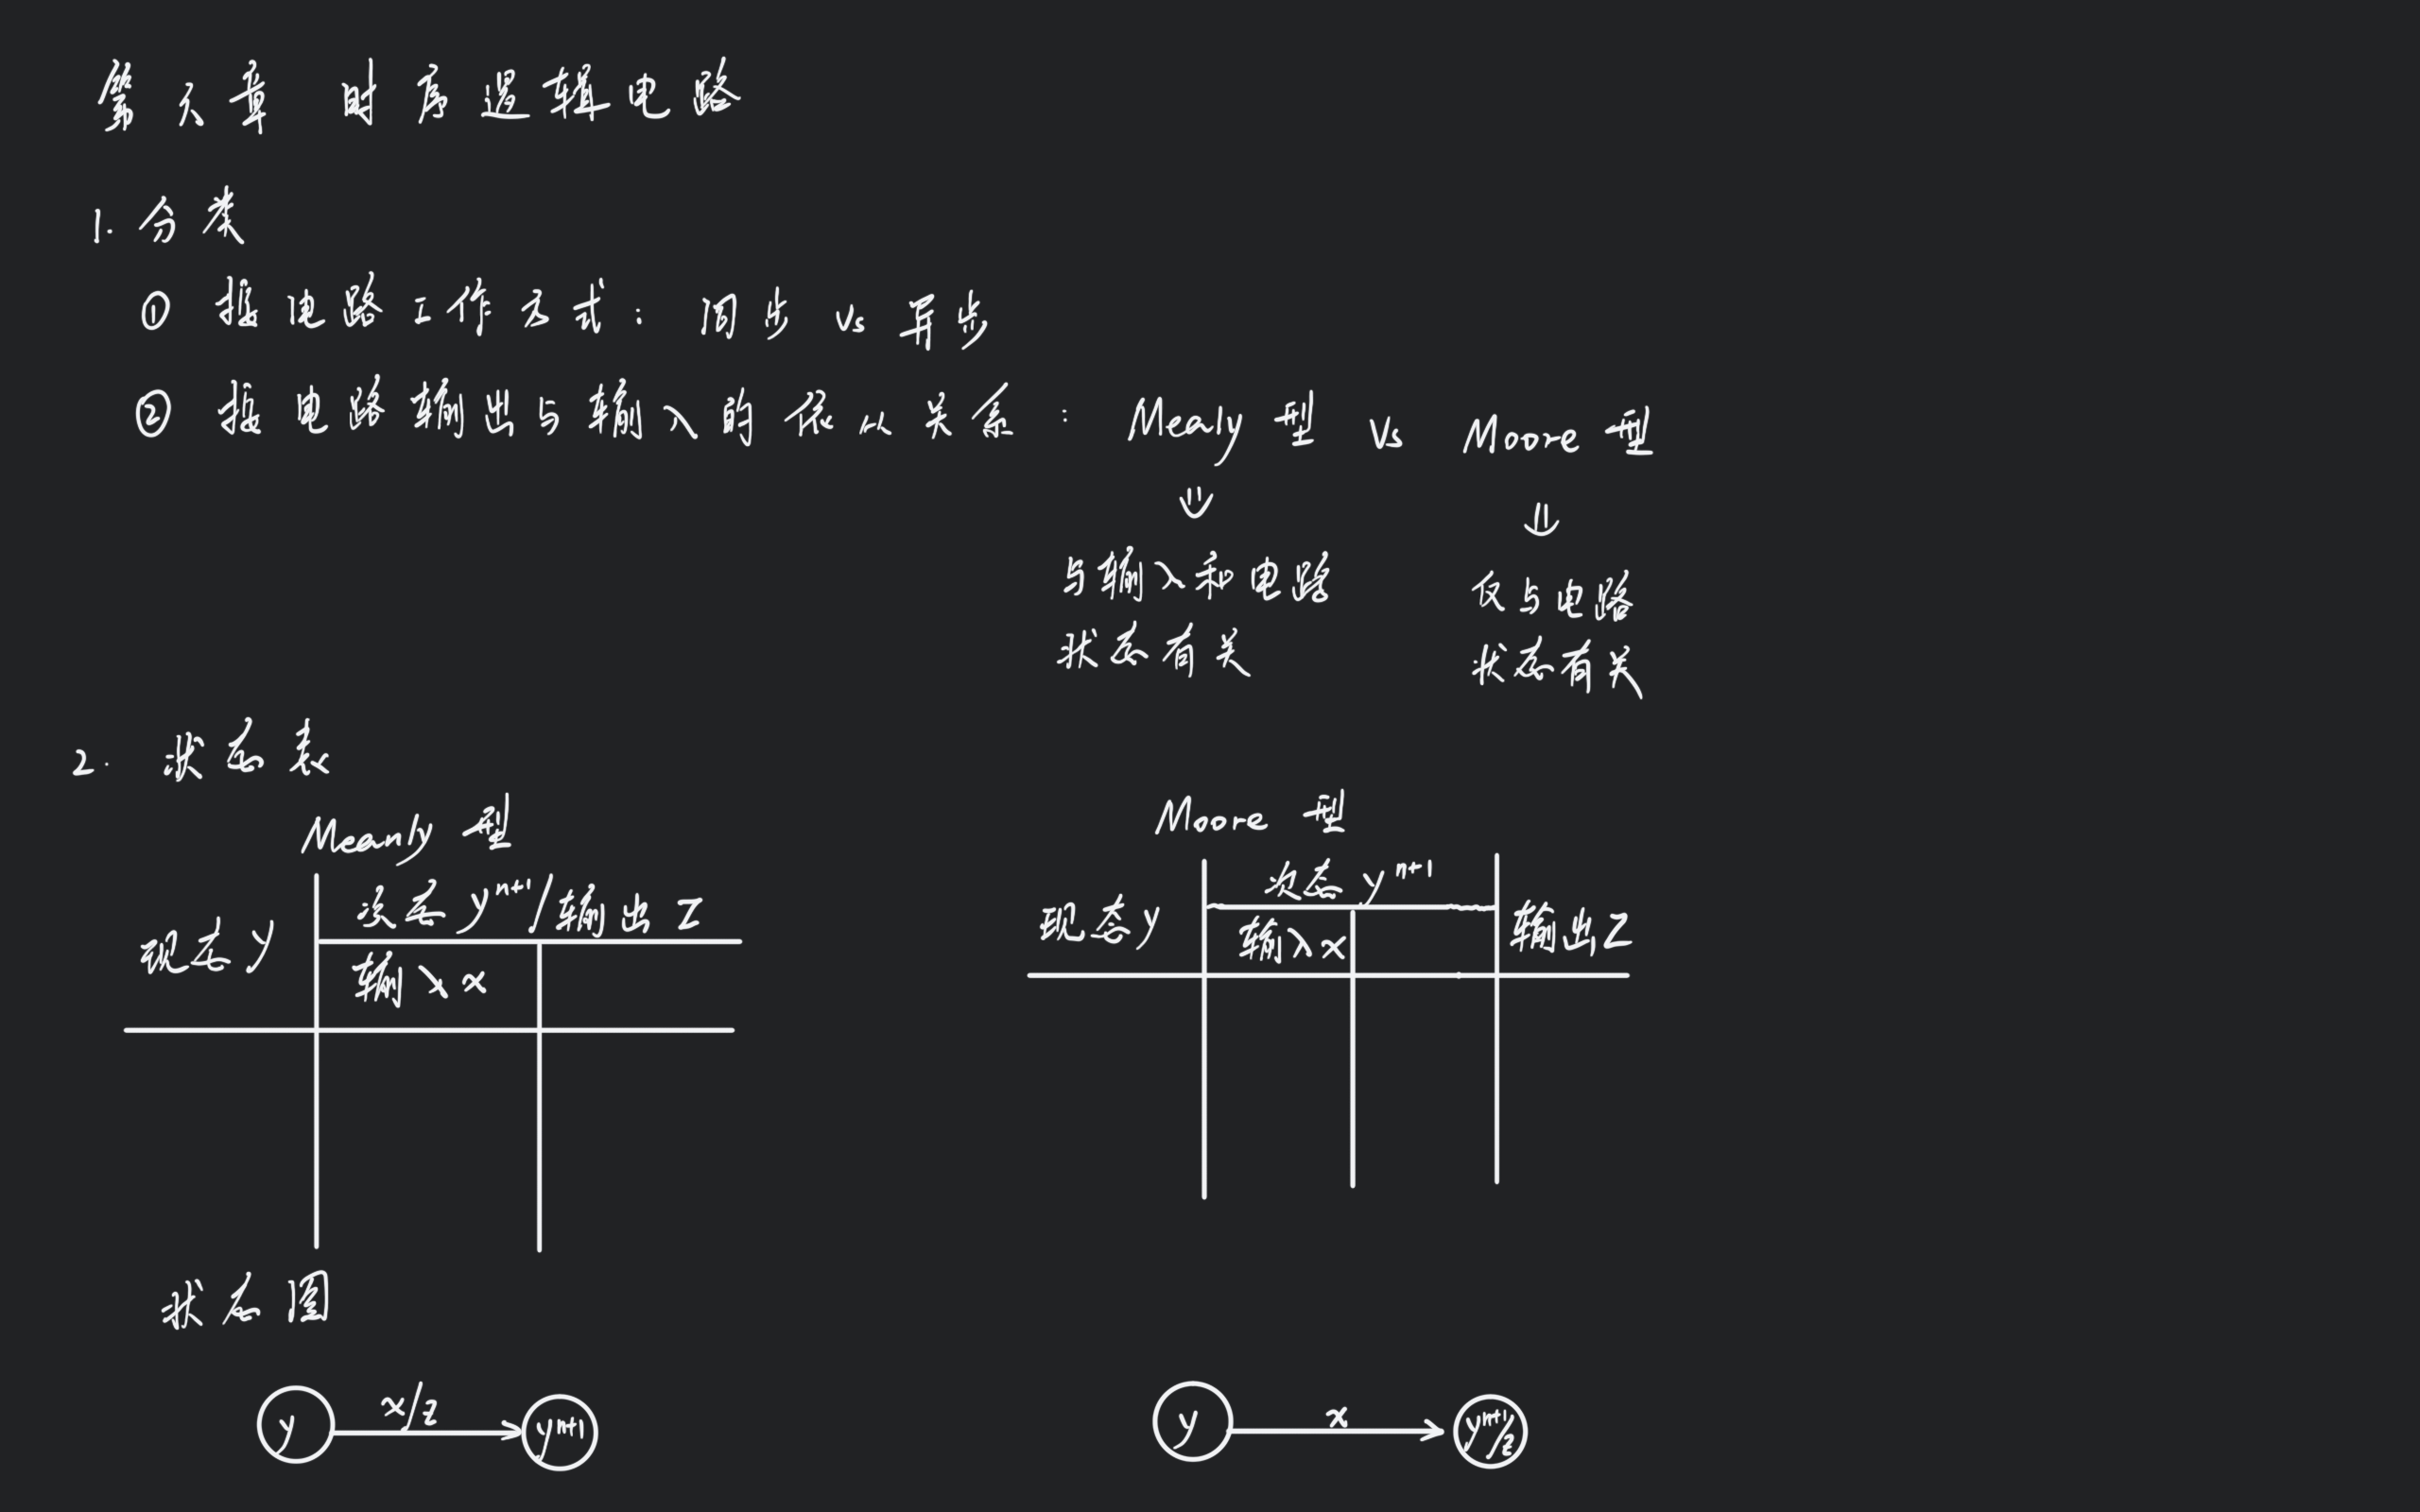 第六章 时序逻辑电路
1. 分类
① 按电路工作方式: 同步 vs 异步
② 按电路输出与输入的依从关系: Mealy 型 Vs Moore 型
⇓ ⇓
与输入和电路 仅与电路
状态有关 状态有关
2. 状态表
Meanly 型 Moore 型
现态 y 次态 yⁿ⁺¹/输出 Z 现态 y 次态 yⁿ⁺¹ 输出 Z
输入 x 输入 x
状态图
y x/z yⁿ⁺¹ y x yⁿ⁺¹/z